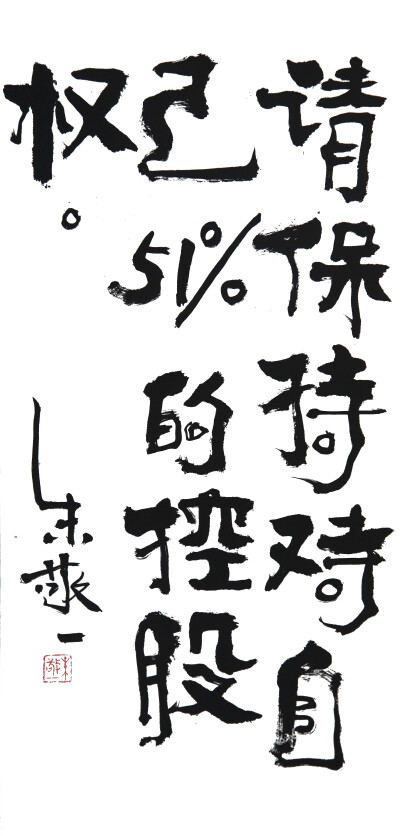 请保持对自
己51%的控股
权。
朱敬一